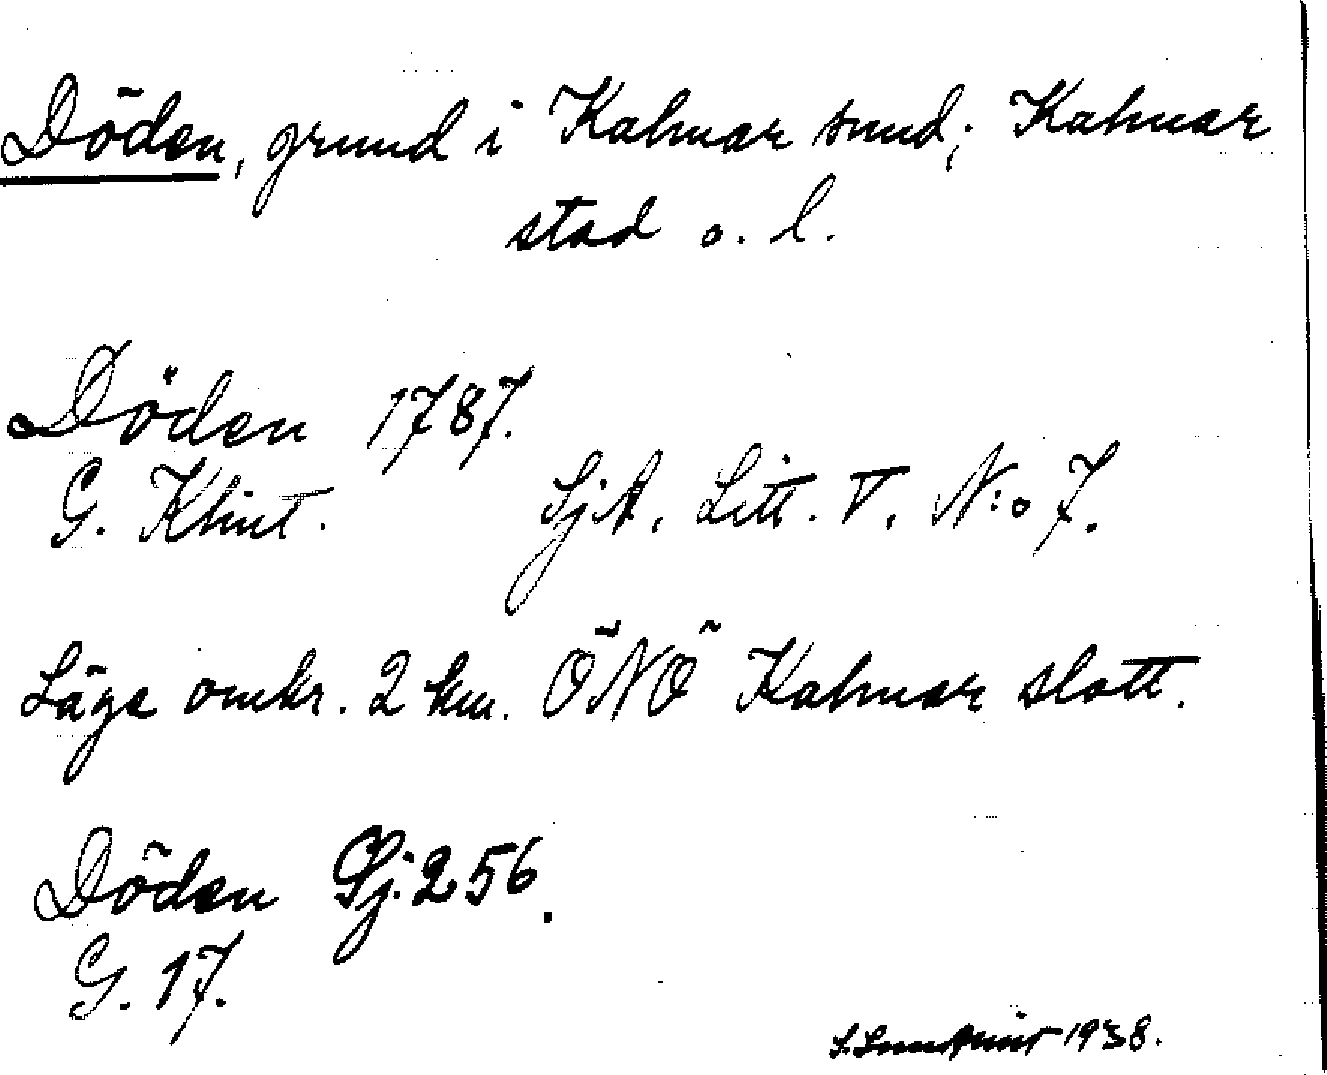 Döden, grund i Kalmar sund; Kalmar
stad o. l.
Döden 1787.
G. Klint. SjA. Litt. V. N:o 7.
Läge omkr. 2 km. ÖNÖ Kalmar slott.
Döden Sj. 256.
G. 17.
S. Lundkvist 1938.